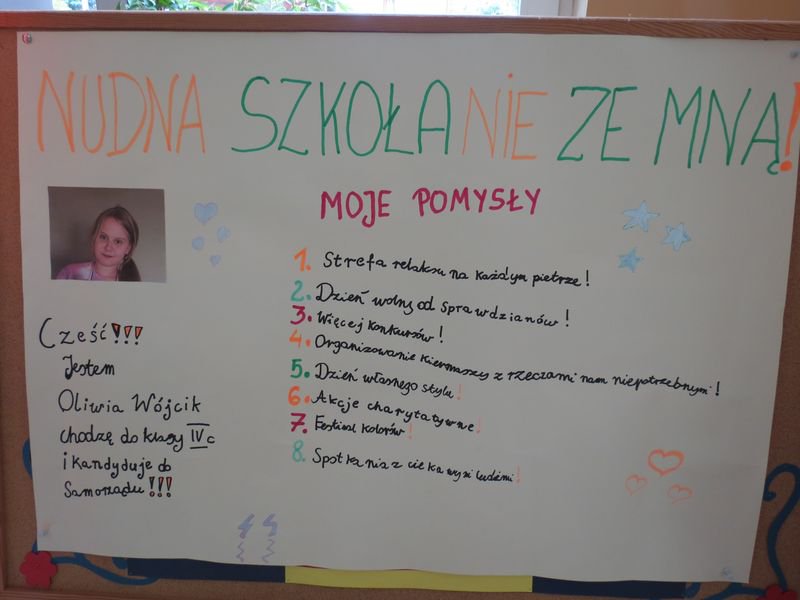 NUDNA SZKOŁA NIE ZE MNĄ!
MOJE POMYSŁY
1. Strefa relaksu na każdym piętrze!
2. Dzień wolny od sprawdzianów!
3. Więcej konkursów!
4. Organizowanie kiermaszy z rzeczami nam niepotrzebnymi!
5. Dzień własnego stylu!
6. Akcje charytatywne!
7. Festiwal kolorów!
8. Spotkania z ciekawymi ludźmi!
Cześć!!!
Jestem
Oliwia Wójcik
chodzę do klasy IVc
i kandyduje do
Samorządu!!!